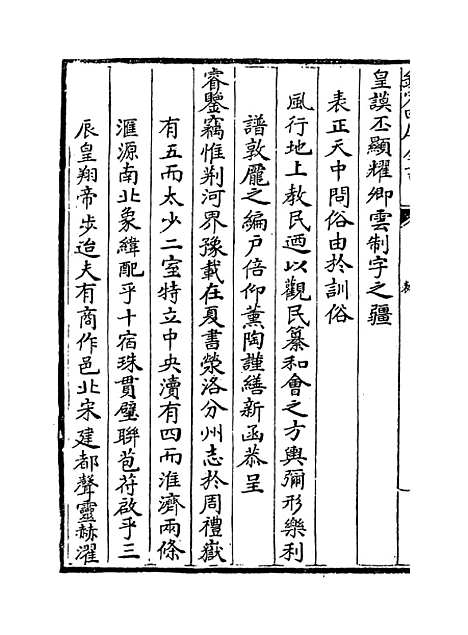 皇謨丕顯耀卿雲制字之疆
表正天中問俗由於訓俗
風行地上教民迺以觀民纂和會之方輿彌形樂利
譜敦龐之編户倍仰薰陶謹繕新函恭呈
睿鑒竊惟荆河界豫載在夏書滎洛分州志於周禮嶽
有五而太少二室特立中央瀆有四而淮濟兩條
滙源南北象緯配乎十宿珠貫璧聯苞符啟乎三
辰皇翔帝步迨夫有商作邑北宋建都聲靈赫濯